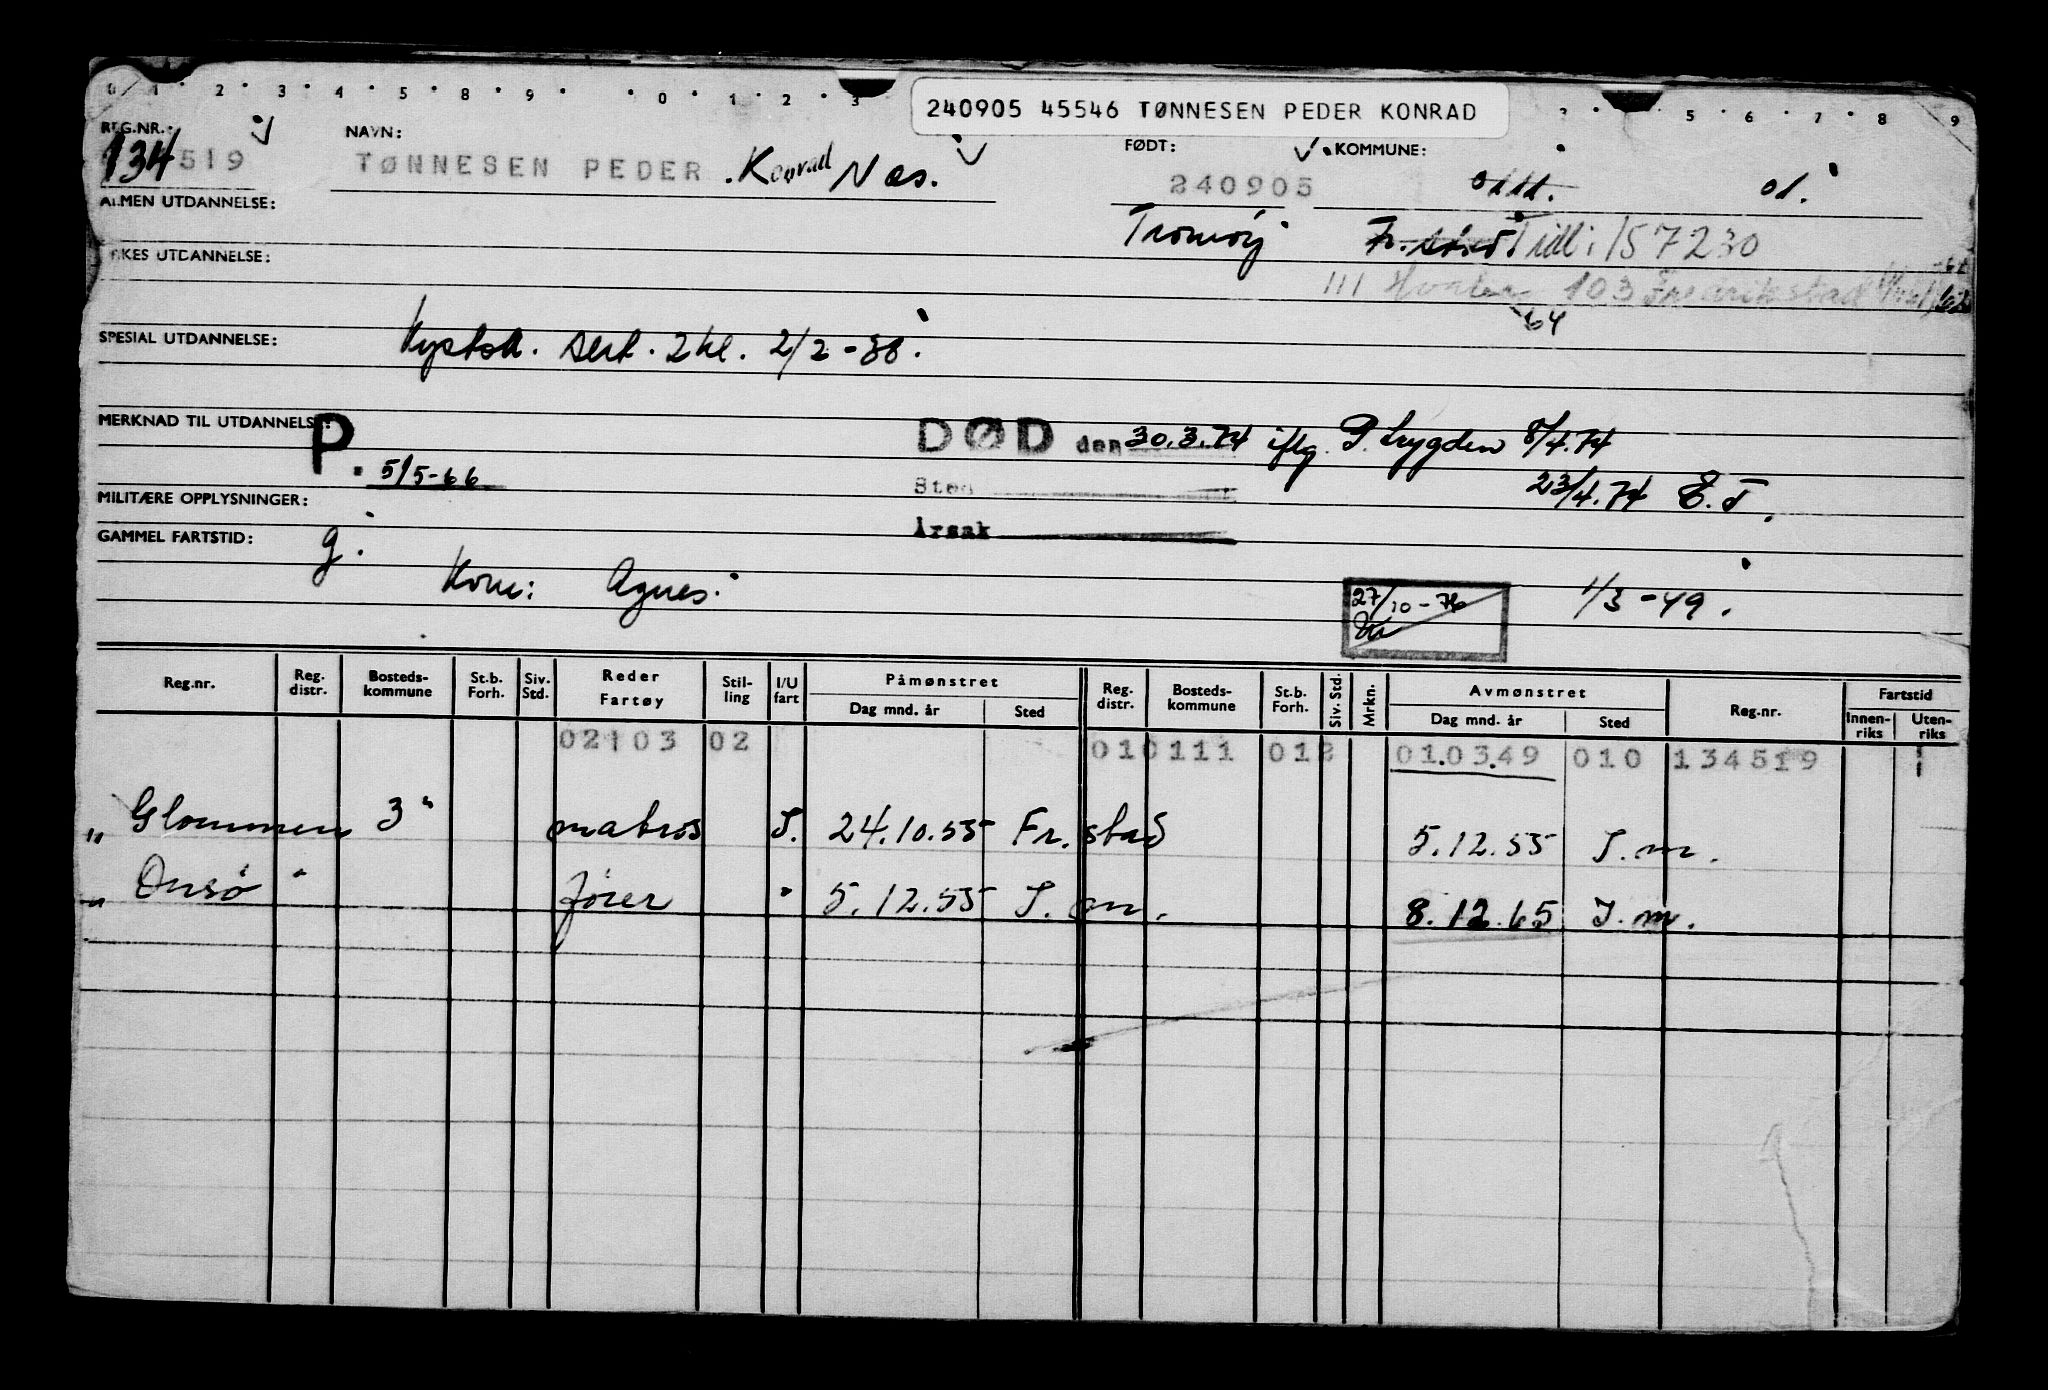 0 1 2 3 4 5 8 9 0 1 2 3 5 6 7 8 9
240905 45546 TØNNESEN PEDER KONRAD
REG.NR.: NAVN: FØDT: KOMMUNE:
134519 TØNNESEN PEDER Konrad Næs. 240905 0111. 01.
ALMEN UTDANNELSE: Tromøy Fr.stad. Tidl: 157230
YRKES UTDANNELSE: 111 Hvaler 103 Fredrikstad
64
SPESIAL UTDANNELSE: Kystsk. sert. 2 kl. 2/2-38.
MERKNAD TIL UTDANNELSE: P. 5/5-66 DØD den 30.3.74 iflg. P. trygden 8/4.74
Sted 23/4.74 E.T.
MILITÆRE OPPLYSNINGER: Årsak
GAMMEL FARTSTID: g.
Kom: Agnes. 27/10-76 1/3-49.
Reg.nr. Reg. distr. Bosteds-kommune St.b. Forh. Siv. Std. Reder Fartøy Stil-ling I/U fart Påmønstret Dag mnd. år Sted Reg. distr. Bosteds-kommune St.b. Forh. Siv. Std. Mrkn. Avmønstret Dag mnd. år Sted Reg.nr. Fartstid Innen-riks Uten-riks
02103 02 010111 012 01.03.49 010 134519
" Glommen 3" matros I. 24.10.55 Fr.stad 5.12.55 I.m.
" Onsø " fører " 5.12.55 I.m. 8.12.65 I.m.